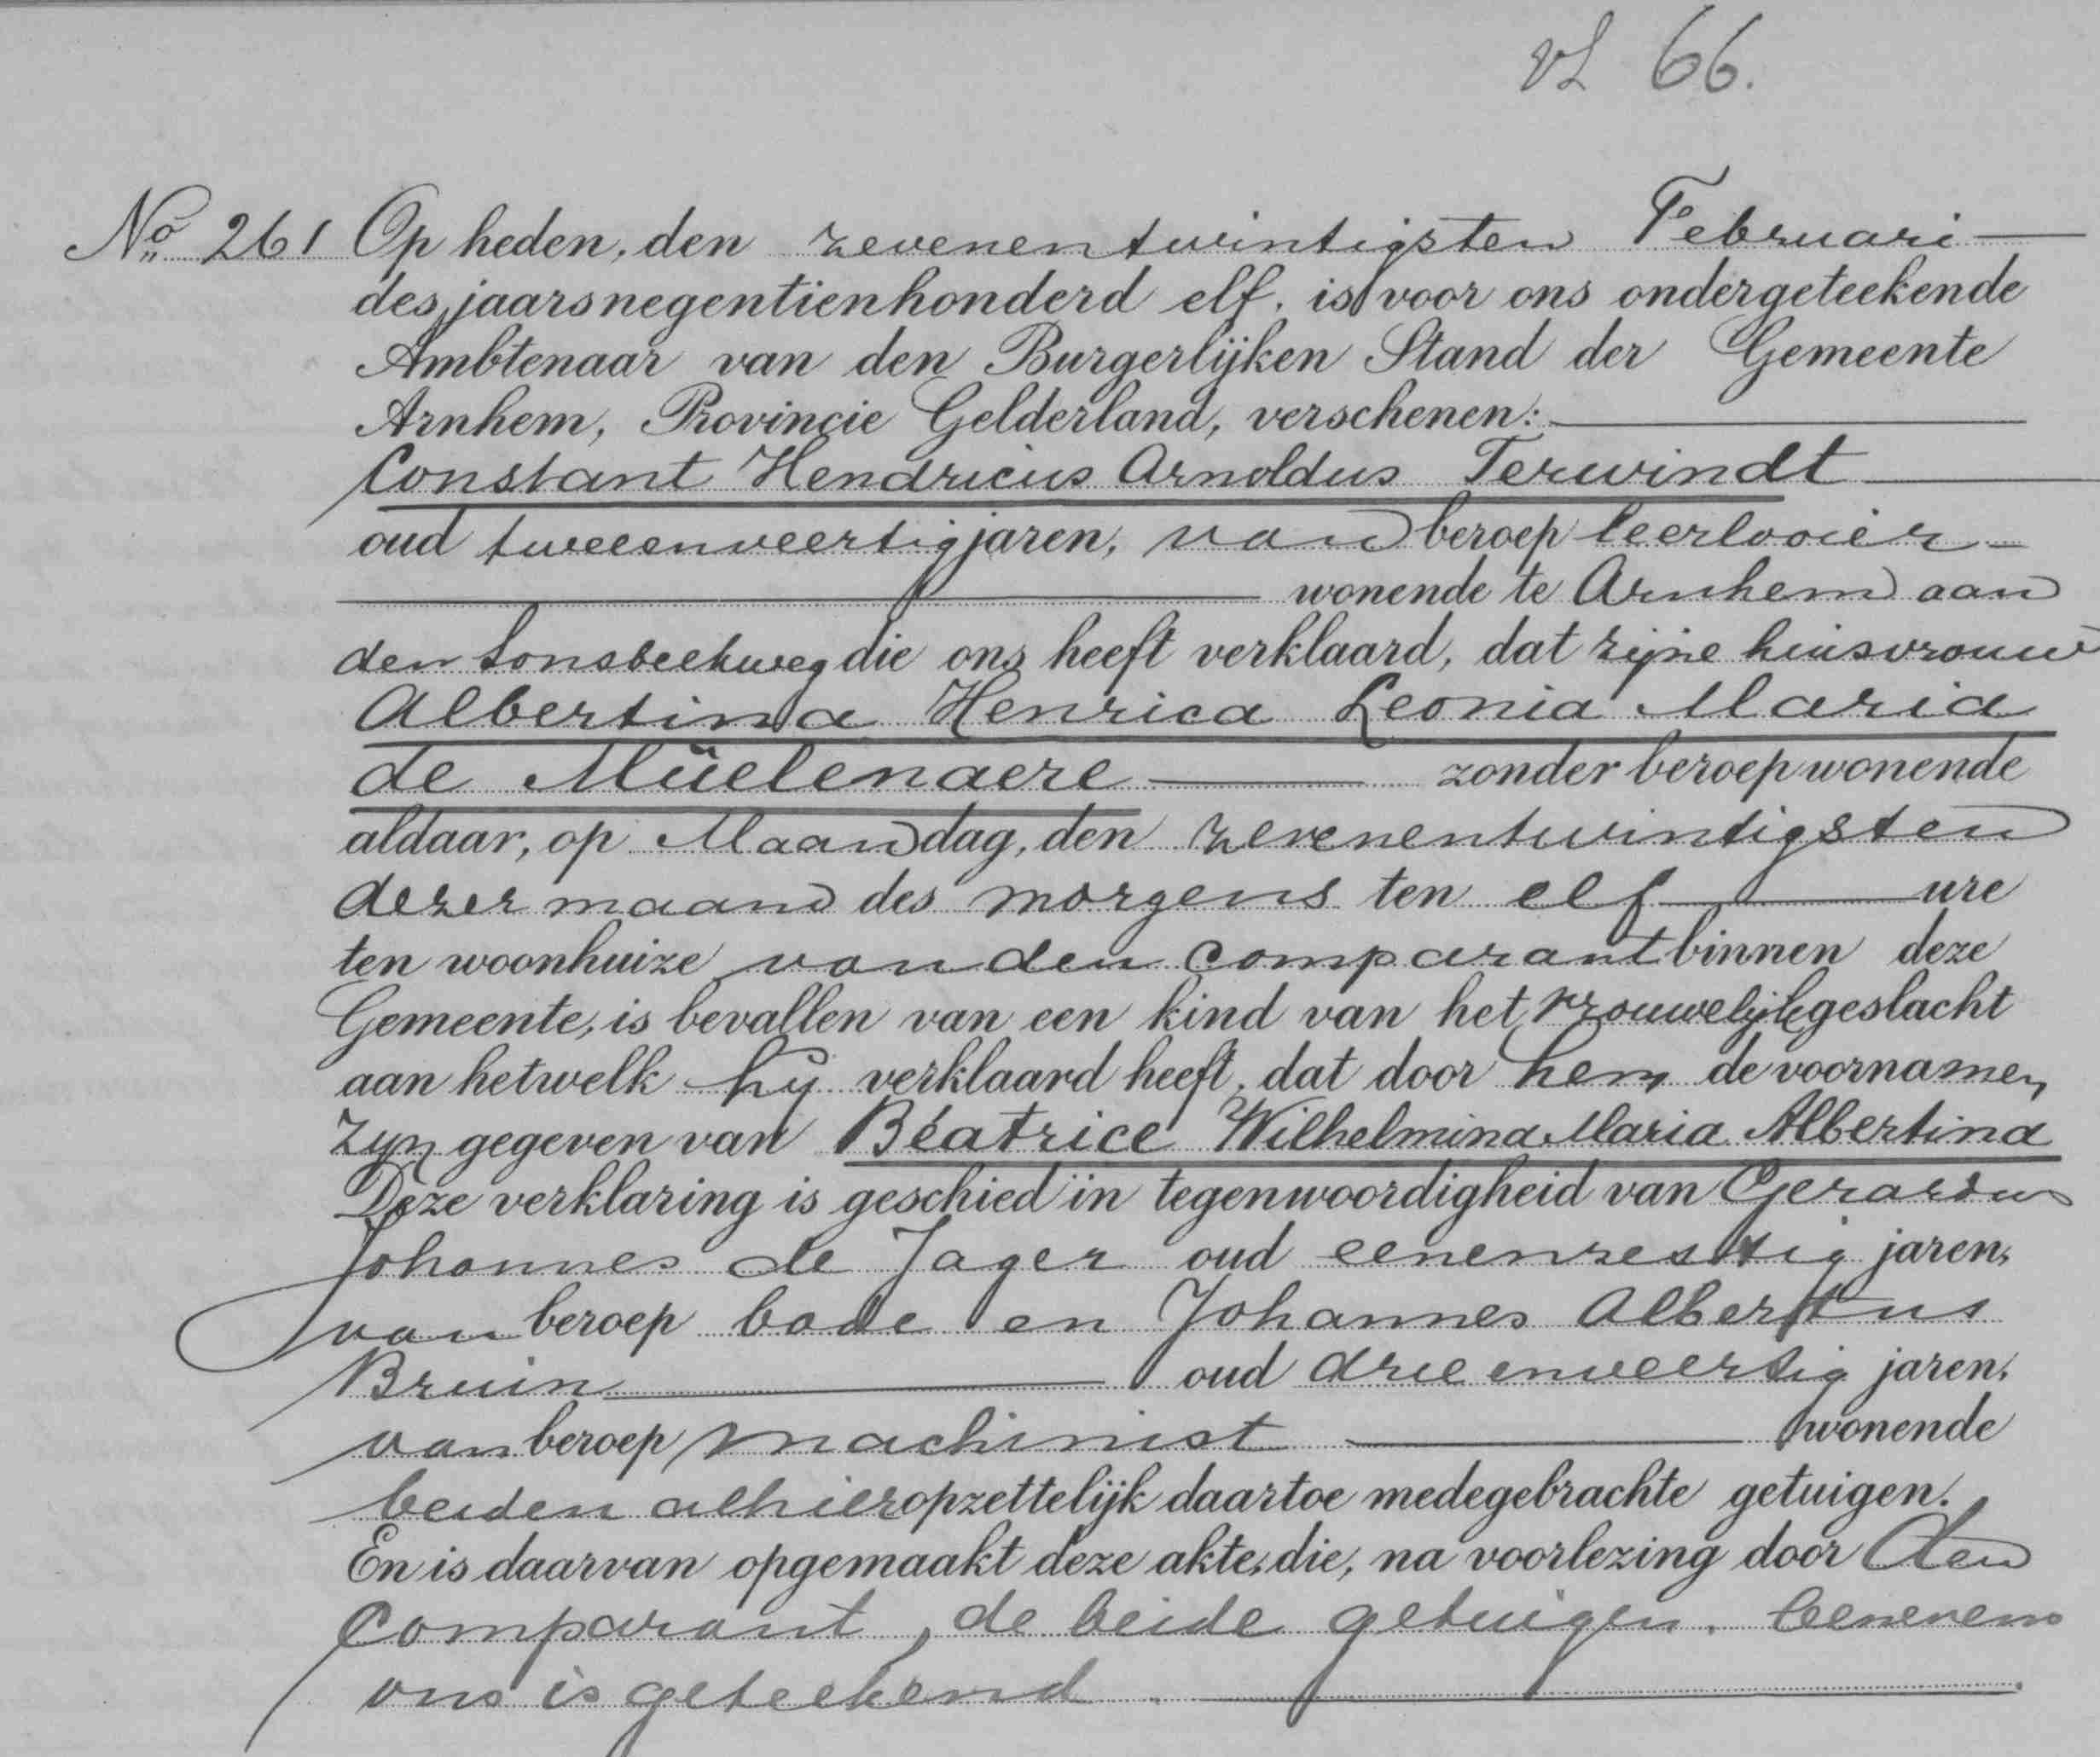 vL 66.
No. 261 Op heden, den zevenentwintigsten Februari
des jaars negentienhonderd elf, is voor ons ondergeteekende
Ambtenaar van den Burgerlijken Stand der Gemeente
Arnhem, Provincie Gelderland, verschenen:
Constant Hendricus Arnoldus Terwindt
oud tweeenveertig jaren, van beroep leerlooier
wonende te Arnhem aan
den Sonsbeekweg die ons heeft verklaard, dat zijne huisvrouw
Albertina Henrica Leonia Maria
de Müelenaere zonder beroep wonende
aldaar, op Maandag, den zevenentwintigsten
dezer maand des morgens ten elf ure
ten woonhuize van den comparant binnen deze
Gemeente, is bevallen van een kind van het vrouwelijk geslacht
aan hetwelk hij verklaard heeft, dat door hem de voornamen
zijn gegeven van Béatrice Wilhelmina Maria Albertina
Deze verklaring is geschied in tegenwoordigheid van Gerardus
Johannes de Jager oud eenenzestig jaren,
van beroep bode en Johannes Albertus
Bruin oud drieenveertig jaren,
van beroep machinist wonende
beiden alhier opzettelijk daartoe medegebrachte getuigen.
En is daarvan opgemaakt deze akte, die, na voorlezing door den
comparant, de beide getuigen, benevens
ons is geteekend.